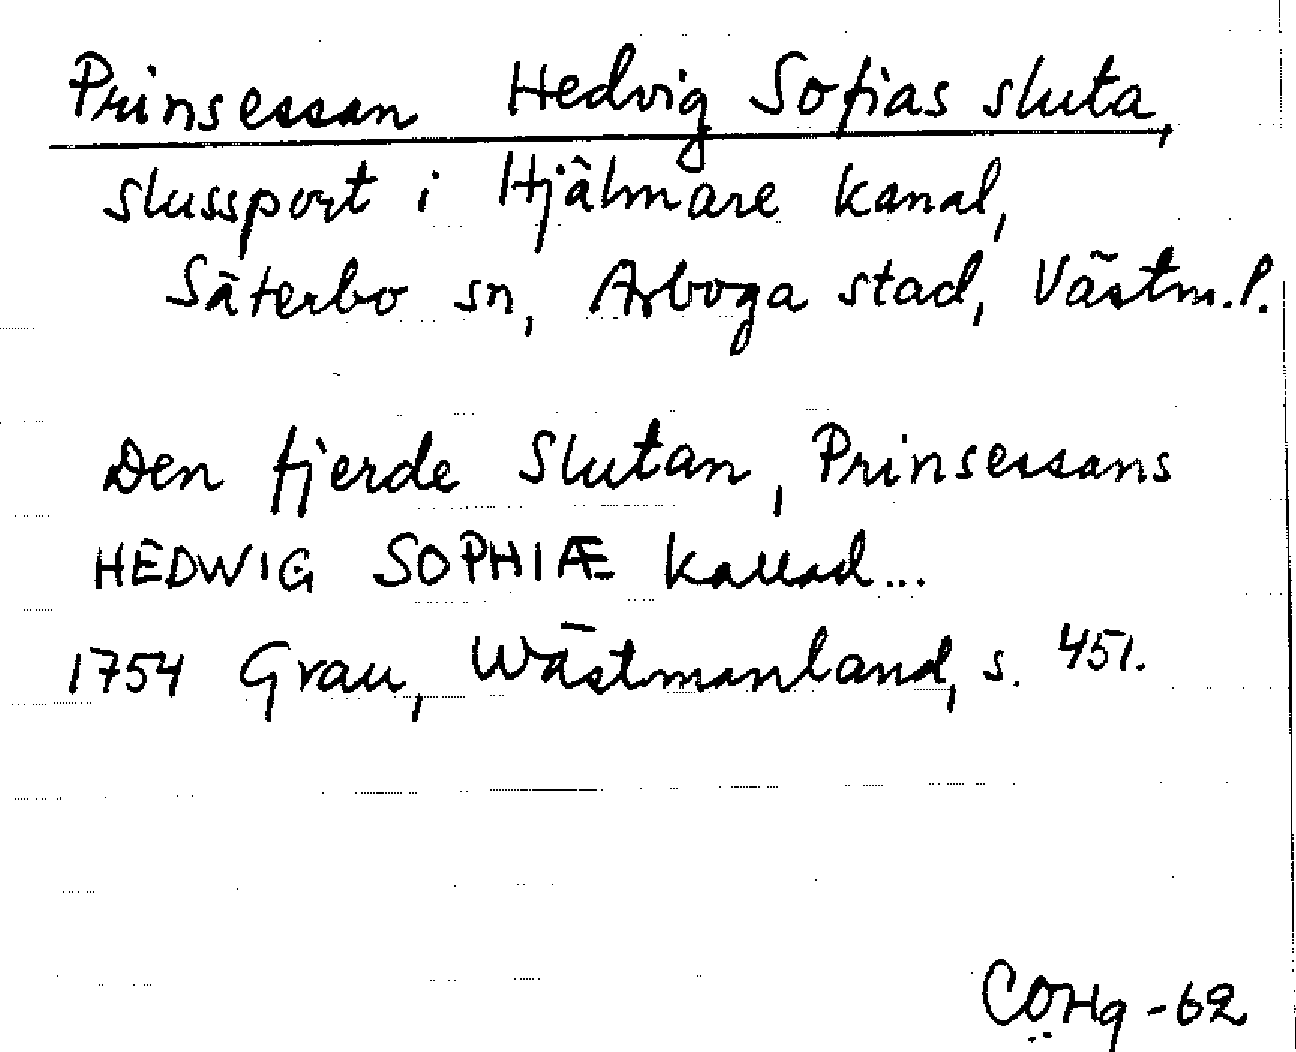 Prinsessan Hedvig Sofias sluta,
slussport i Hjälmare kanal,
Säterbo sn, Arboga stad, Västm.l.
Den fjerde Slutan, Prinsessans
HEDWIG SOPHIÆ kallad...
1754 Grau, Wästmanland, s. 451.
COHg -62